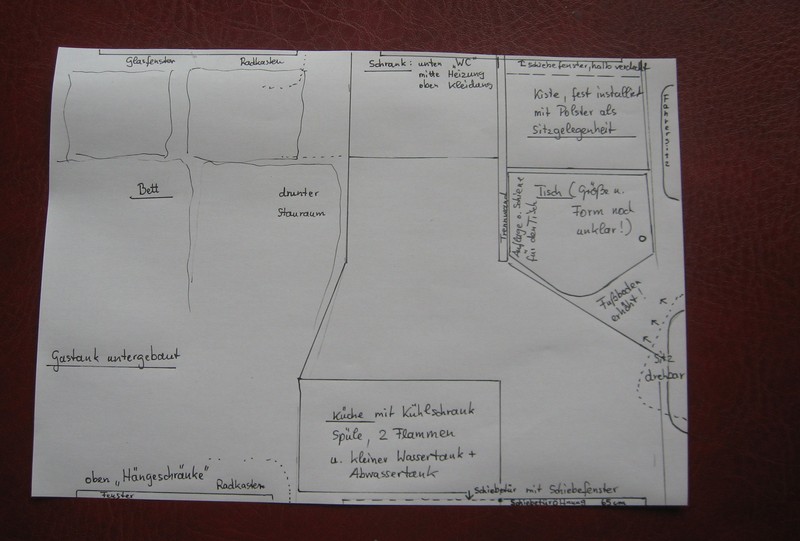 Glasfenster
Radkasten
Schrank: unten "WC"
mitte Heizung
oben Kleidung
1 Schiebefenster, halb verdeckt
Kiste, fest installiert
mit Polster als
Sitzgelegenheit
Fahrerseite
Bett
drunter
Stauraum
Trennwand
Auflage o. Schiene
für den Tisch
Tisch (Größe u.
Form noch
unklar!)
Fußboden
erhöht!
Gastank untergebaut
Sitz
drehbar
Küche mit Kühlschrank
Spüle, 2 Flammen
u. kleiner Wassertank +
Abwassertank
oben "Hängeschränke"
Radkasten
Fenster
Schiebetür mit Schiebefenster
Schiebetüröffnung
cm